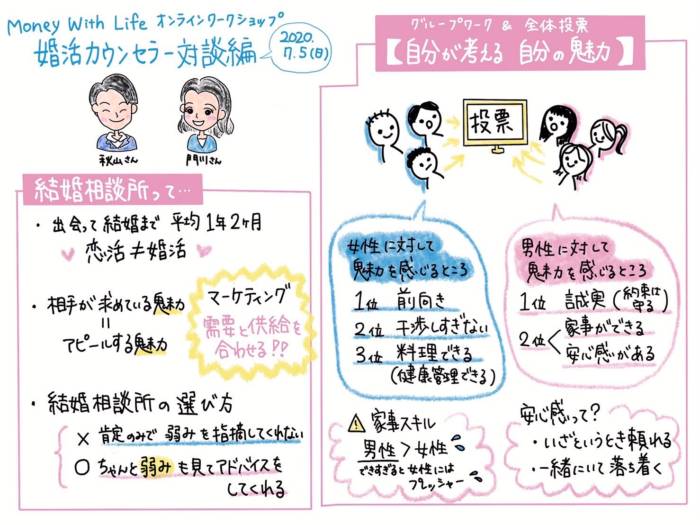 Money With Life オンラインワークショップ
婚活カウンセラー対談編
2020.
7.5(日)
秋山さん
門川さん
結婚相談所って…
・出会って結婚まで 平均1年2ヶ月
恋活≠婚活
・相手が求めている魅力
＝
アピールする魅力
マーケティング
需要と供給を
合わせる!!
・結婚相談所の選び方
× 肯定のみで 弱みを指摘してくれない
○ ちゃんと弱みも見てアドバイスを
してくれる
グループワーク & 全体投票
【自分が考える 自分の魅力】
投票
女性に対して
魅力を感じるところ
1位 前向き
2位 干渉しすぎない
3位 料理できる
(健康管理できる)
男性に対して
魅力を感じるところ
1位 誠実(約束は
守る)
2位 家事ができる
安心感がある
⚠ 家事スキル
男性 > 女性
できすぎると女性には
プレッシャー
安心感って?
・いざというとき頼れる
・一緒にいて落ち着く